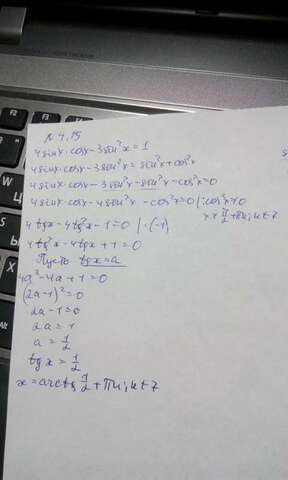 № 4.15
4 sinx · cosx - 3 sin²x = 1
4 sinx · cosx - 3 sin²x = sin²x + cos²x
4 sinx · cosx - 3 sin²x - sin²x - cos²x = 0
4 sinx · cosx - 4 sin²x - cos²x = 0 | : cos²x ≠ 0
x ≠ π/2 + πk, k ∈ Z
4 tgx - 4 tg²x - 1 = 0 | · (-1)
4 tg²x - 4 tgx + 1 = 0
Пусть tgx = a
4a² - 4a + 1 = 0
(2a - 1)² = 0
2a - 1 = 0
2a = 1
a = 1/2
tg x = 1/2
x = arctg 1/2 + πk, k ∈ Z